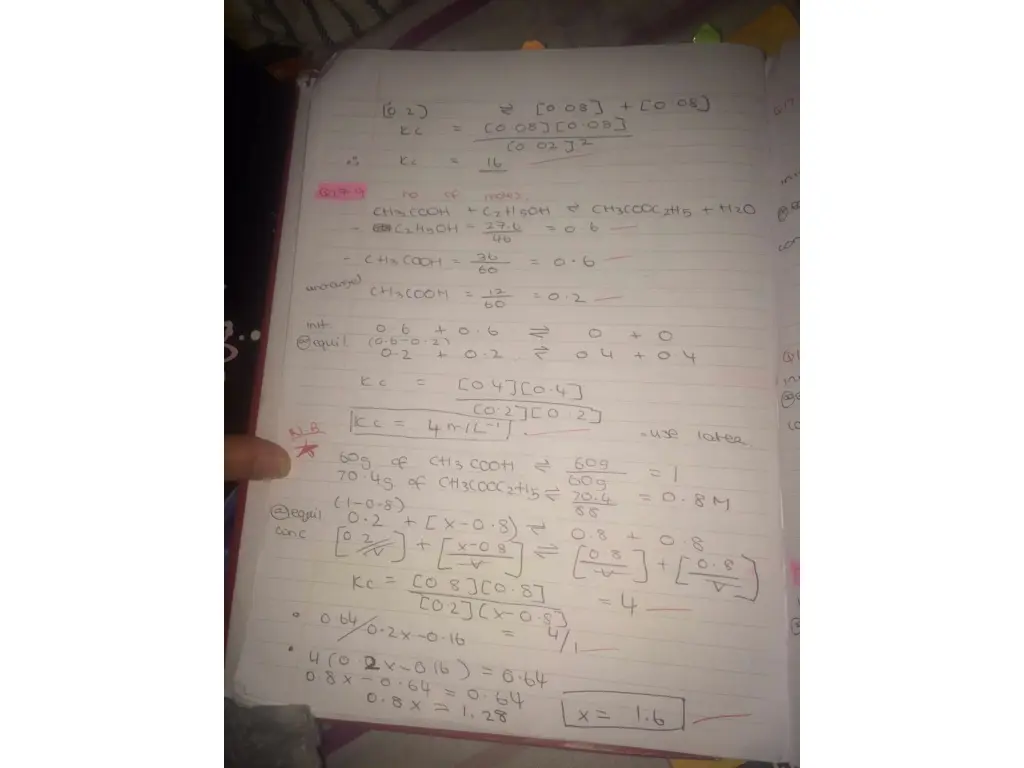 [0.2] ⇌ [0.08] + [0.08]
Kc = [0.08][0.08]
[0.02]²
∴ Kc = 16
no of moles
CH3COOH + C2H5OH ⇌ CH3COOC2H5 + H2O
- C2H5OH = 27.6/46 = 0.6
- CH3COOH = 36/60 = 0.6
CH3COOH = 12/60 = 0.2
init 0.6 + 0.6 ⇌ 0 + 0
(0.6-0.2)
@equil 0.2 + 0.2 ⇌ 0.4 + 0.4
Kc = [0.4][0.4]
[0.2][0.2]
Kc = 4 m/L⁻¹
- use later
N.B
60g of CH3COOH ⇌ 60g/60g = 1
70.4g of CH3COOC2H5 ⇌ 70.4/88 = 0.8M
(1-0.8)
@equil 0.2 + [x-0.8) ⇌ 0.8 + 0.8
conc [0.2/V] + [x-0.8/V] ⇌ [0.8/V] + [0.8/V]
Kc = [0.8][0.8] = 4
[0.2](x-0.8]
• 0.64/0.2x-0.16 = 4/1
• 4(0.2x-0.16) = 0.64
0.8x-0.64 = 0.64
0.8x = 1.28
x = 1.6